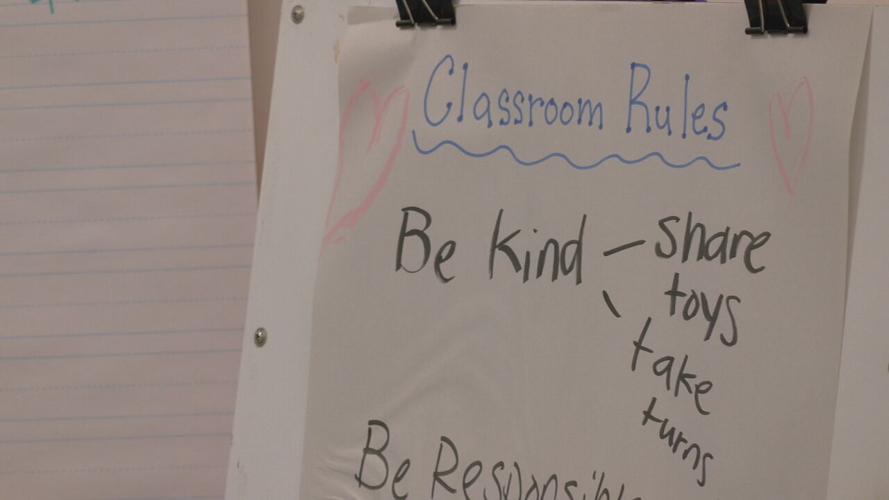 Classroom Rules
Be Kind – Share
toys
take
turns
Be Responsible